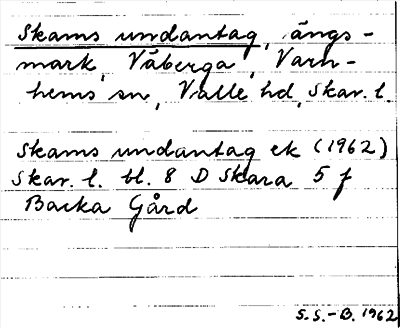 Skams undantag, ängs-
mark, Våberga, Varn-
hems sn, Valle hd, Skar. l.
Skams undantag ek (1962)
Skar. l. bl. 8 D Skara 5 f
Backa Gård
S.S.-B. 1962